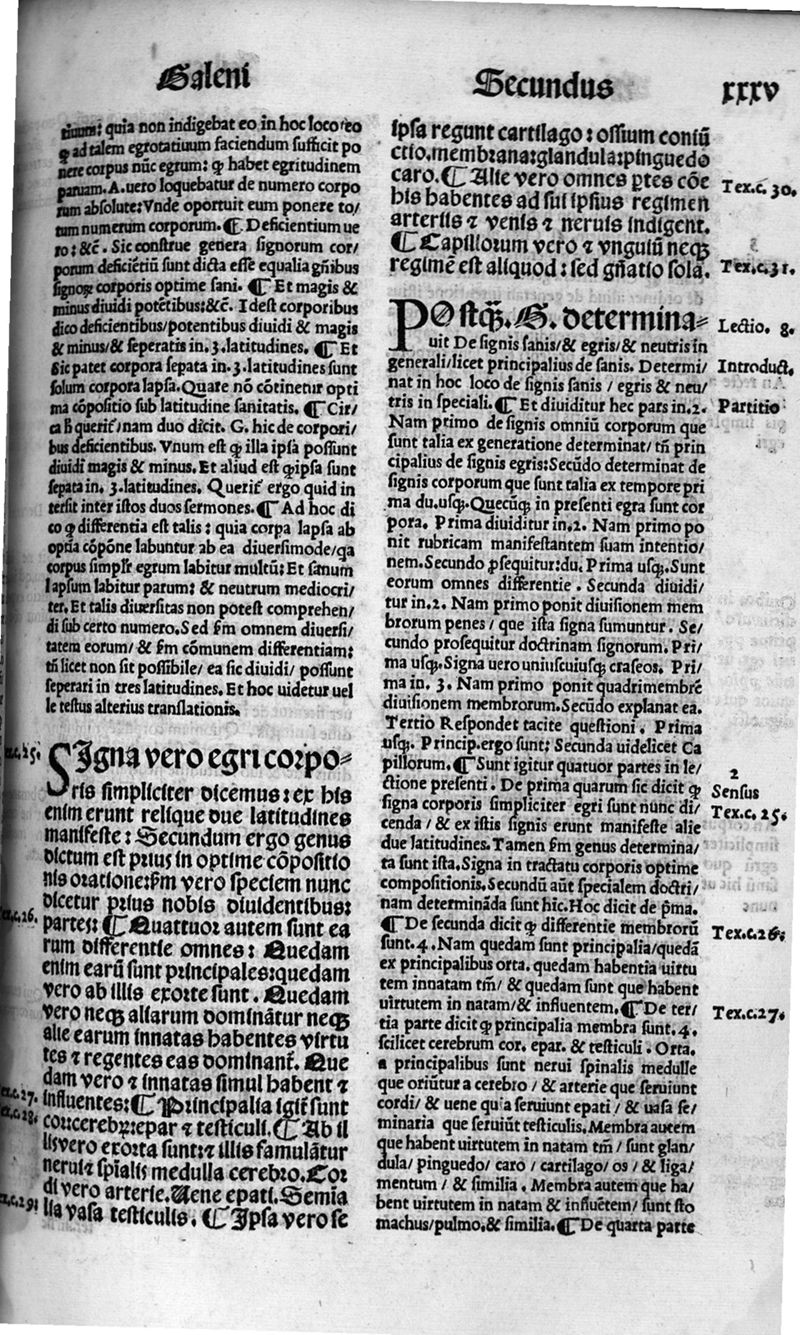 Galeni
Secundus
xxxv
tiuum: quia non indigebat eo in hoc loco: eo
ꝙ ad talem egrotatiuum faciendum sufficit po
nere corpus nūc egrum: ꝙ habet egritudinem
paruam. A. uero loquebatur de numero corpo
rum absolute: Vnde oportuit eum ponere to/
tum numerum corporum. ¶ Deficientium ue
ro: &c̄. Sic construe genera signorum cor/
porum deficiētiū sunt dicta esse equalia gn̄ibus
signoꝝ corporis optime sani. ¶ Et magis &
minus diuidi potētibus: &c̄. Idest corporibus
dico deficientibus/potentibus diuidi & magis
& minus/& seperatis in .3. latitudines. ¶ Et
sic patet corpora sepata in .3. latitudines sunt
solum corpora lapsa. Quare nō cōtinetur opti
ma cōpositio sub latitudine sanitatis. ¶ Cir/
ca B querit̄/nam duo dicit. G. hic de corpori/
bus deficientibus. Vnum est ꝙ illa ipsa possunt
diuidi magis & minus. Et aliud est ꝙ ipsa sunt
sepata in .3. latitudines. Querit̄ ergo quid in
tersit inter istos duos sermones. ¶ Ad hoc di
co ꝙ differentia est talis: quia corpa lapsa ab
optīa cōpōne labuntur ab ea diuersimode/qa
corpus simplr̄ egrum labitur multū: Et sanum
lapsum labitur parum: & neutrum mediocri/
ter. Et talis diuersitas non potest comprehen/
di sub certo numero. Sed fm̄ omnem diuersi/
tatem eorum/& fm̄ cōmunem differentiam:
tn̄ licet non sit possibile/ea sic diuidi/possunt
seperari in tres latitudines. Et hoc uidetur uel
le testus alterius translationis.
SIgna vero egri corpo-
ris simpliciter dicemus: ex his
enim erunt relique due latitudines
manifeste: Secundum ergo genus
dictum est prius in optime cōpositio
nis oratione: fm̄ vero speciem nunc
dicetur prius nobis diuidentibus:
partes: ¶ Quattuor autem sunt ea
rum differentie omnes: Quedam
enim earū sunt principales: quedam
vero ab illis exorte sunt. Quedam
vero neqꝫ aliarum dominātur neqꝫ
alie earum innatas habentes virtu
tes ⁊ regentes eas dominant̄. Que
dam vero ⁊ innatas simul habent ⁊
influentes: ¶ Principalia igit̄ sunt
cor: cerebꝝ: epar ⁊ testiculi. ¶ Ab il
lis vero exorta sunt: ⁊ illis famulātur
nerui ⁊ spīalis medulla cerebro. Cor
di vero arterie. Uene epati. Semia
lia vasa testiculis. ¶ Ipsa vero se
ipsa regunt cartilago: ossium coniū
ctio. membrana: glandula: pinguedo
caro. ¶ Alie vero omnes ꝑtes cōe
his habentes ad sui ipsius regimen
arteriis ⁊ venis ⁊ neruis indigent.
¶ Capillorum vero ⁊ vnguiū neqꝫ
regimē est aliquod: sed gn̄atio sola.
POstqꝫ. G. determina-
uit De signis sanis/& egris/& neutris in
generali/licet principalius de sanis. Determi/
nat in hoc loco de signis sanis/egris & neu/
tris in speciali. ¶ Et diuiditur hec pars in .2.
Nam primo de signis omniū corporum que
sunt talia ex generatione determinat/tn̄ prin
cipalius de signis egris: Secūdo determinat de
signis corporum que sunt talia ex tempore pri
ma du. usqꝫ. Quecūqꝫ in presenti egra sunt cor
pora. Prima diuiditur in .2. Nam primo po
nit rubricam manifestantem suam intentio/
nem. Secundo ꝓsequitur: du. Prima usqꝫ. Sunt
eorum omnes differentie. Secunda diuidi/
tur in .2. Nam primo ponit diuisionem mem
brorum penes/que ista signa sumuntur. Se/
cundo prosequitur doctrinam signorum. Pri/
ma usqꝫ. Signa uero uniuscuiusqꝫ craseos. Pri/
ma in .3. Nam primo ponit quadrimembrē
diuisionem membrorum. Secūdo explanat ea.
Tertio Respondet tacite questioni. Prima
usqꝫ. Princip. ergo sunt: Secunda uidelicet Ca
pillorum. ¶ Sunt igitur quatuor partes in le/
ctione presenti. De prima quarum sic dicit ꝙ
signa corporis simpliciter egri sunt nunc di/
cenda/& ex istis signis erunt manifeste alie
due latitudines. Tamen fm̄ genus determina/
ta sunt ista. Signa in tractatu corporis optime
compositionis. Secundū aūt specialem doctri/
nam determināda sunt hic. Hoc dicit de p̄ma.
¶ De secunda dicit ꝙ differentie membrorū
sunt .4. Nam quedam sunt principalia/quedā
ex principalibus orta. quedam habentia uirtu
tem innatam tm̄/& quedam sunt que habent
uirtutem in natam/& influentem. ¶ De ter/
tia parte dicit ꝙ principalia membra sunt .4.
scilicet cerebrum cor. epar. & testiculi. Orta.
a principalibus sunt nerui spinalis medulle
que oriūtur a cerebro/& arterie que seruiunt
cordi/& uene qu a seruiunt epati/& uasa se/
minaria que seruiūt testiculis. Membra autem
que habent uirtutem in natam tm̄/sunt glan/
dula/pinguedo/caro/cartilago/os/& liga/
mentum/& similia. Membra autem que ha/
bent uirtutem in natam & influētem/sunt sto
machus/pulmo. & similia. ¶ De quarta parte
Tex.c.30.
Tex.c.31.
Lectio. 8.
Introduct.
Partitio
2
Sensus
Tex.c.25.
Tex.c.26.
Tex.c.27.